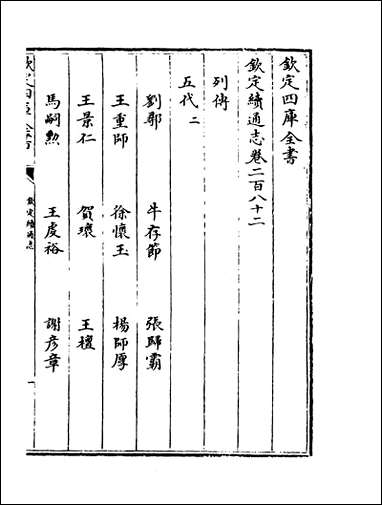 欽定四庫全書
欽定續通志卷二百八十二
列傳
五代二
劉鄩 牛存節 張歸霸
王重師 徐懷玉 楊師厚
王景仁 賀瓌 王檀
馬嗣勲 王虔裕 謝彥章
欽定四庫全書
欽定續通志
一